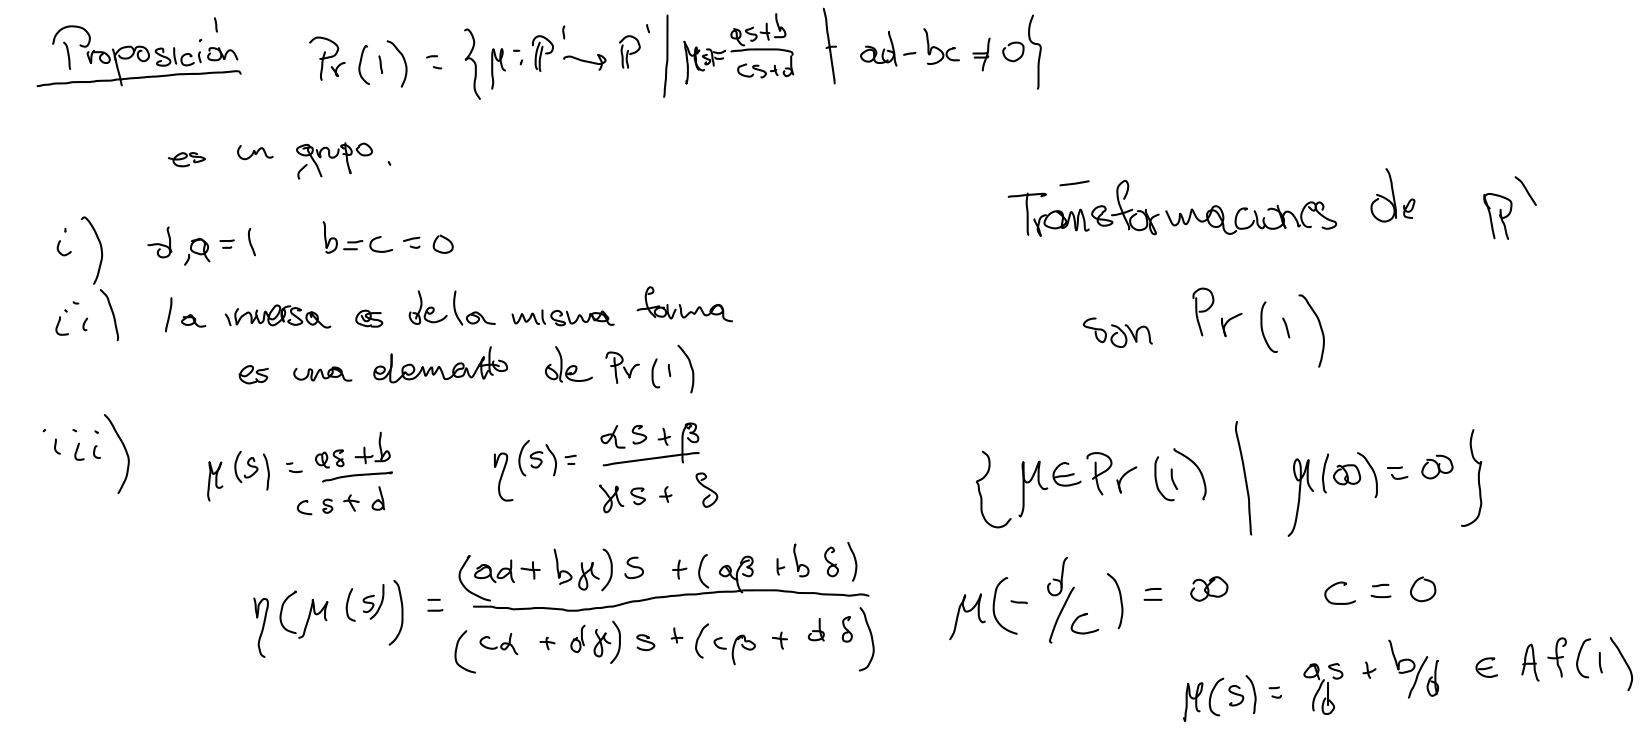 Proposición Pr(1) = {μ: ℙ¹ → ℙ¹ | μ(s)= as+b/cs+d + ad-bc ≠ 0}
es un grupo.
i) d,a=1 b=c=0
ii) la inversa es de la misma forma
es una elemento de Pr(1)
iii) μ(s) = as+b/cs+d η(s) = αs+β/γs+δ
η(μ(s)) = (aα+bγ)s+(aβ+bδ)/(cα+dγ)s+(cβ+dδ)
Transformaciones de ℙ¹
son Pr(1)
{μ∈Pr(1) | μ(∞)=∞}
μ(-d/c) = ∞ c=0
μ(s) = as/d + b/d ∈ Af(1)